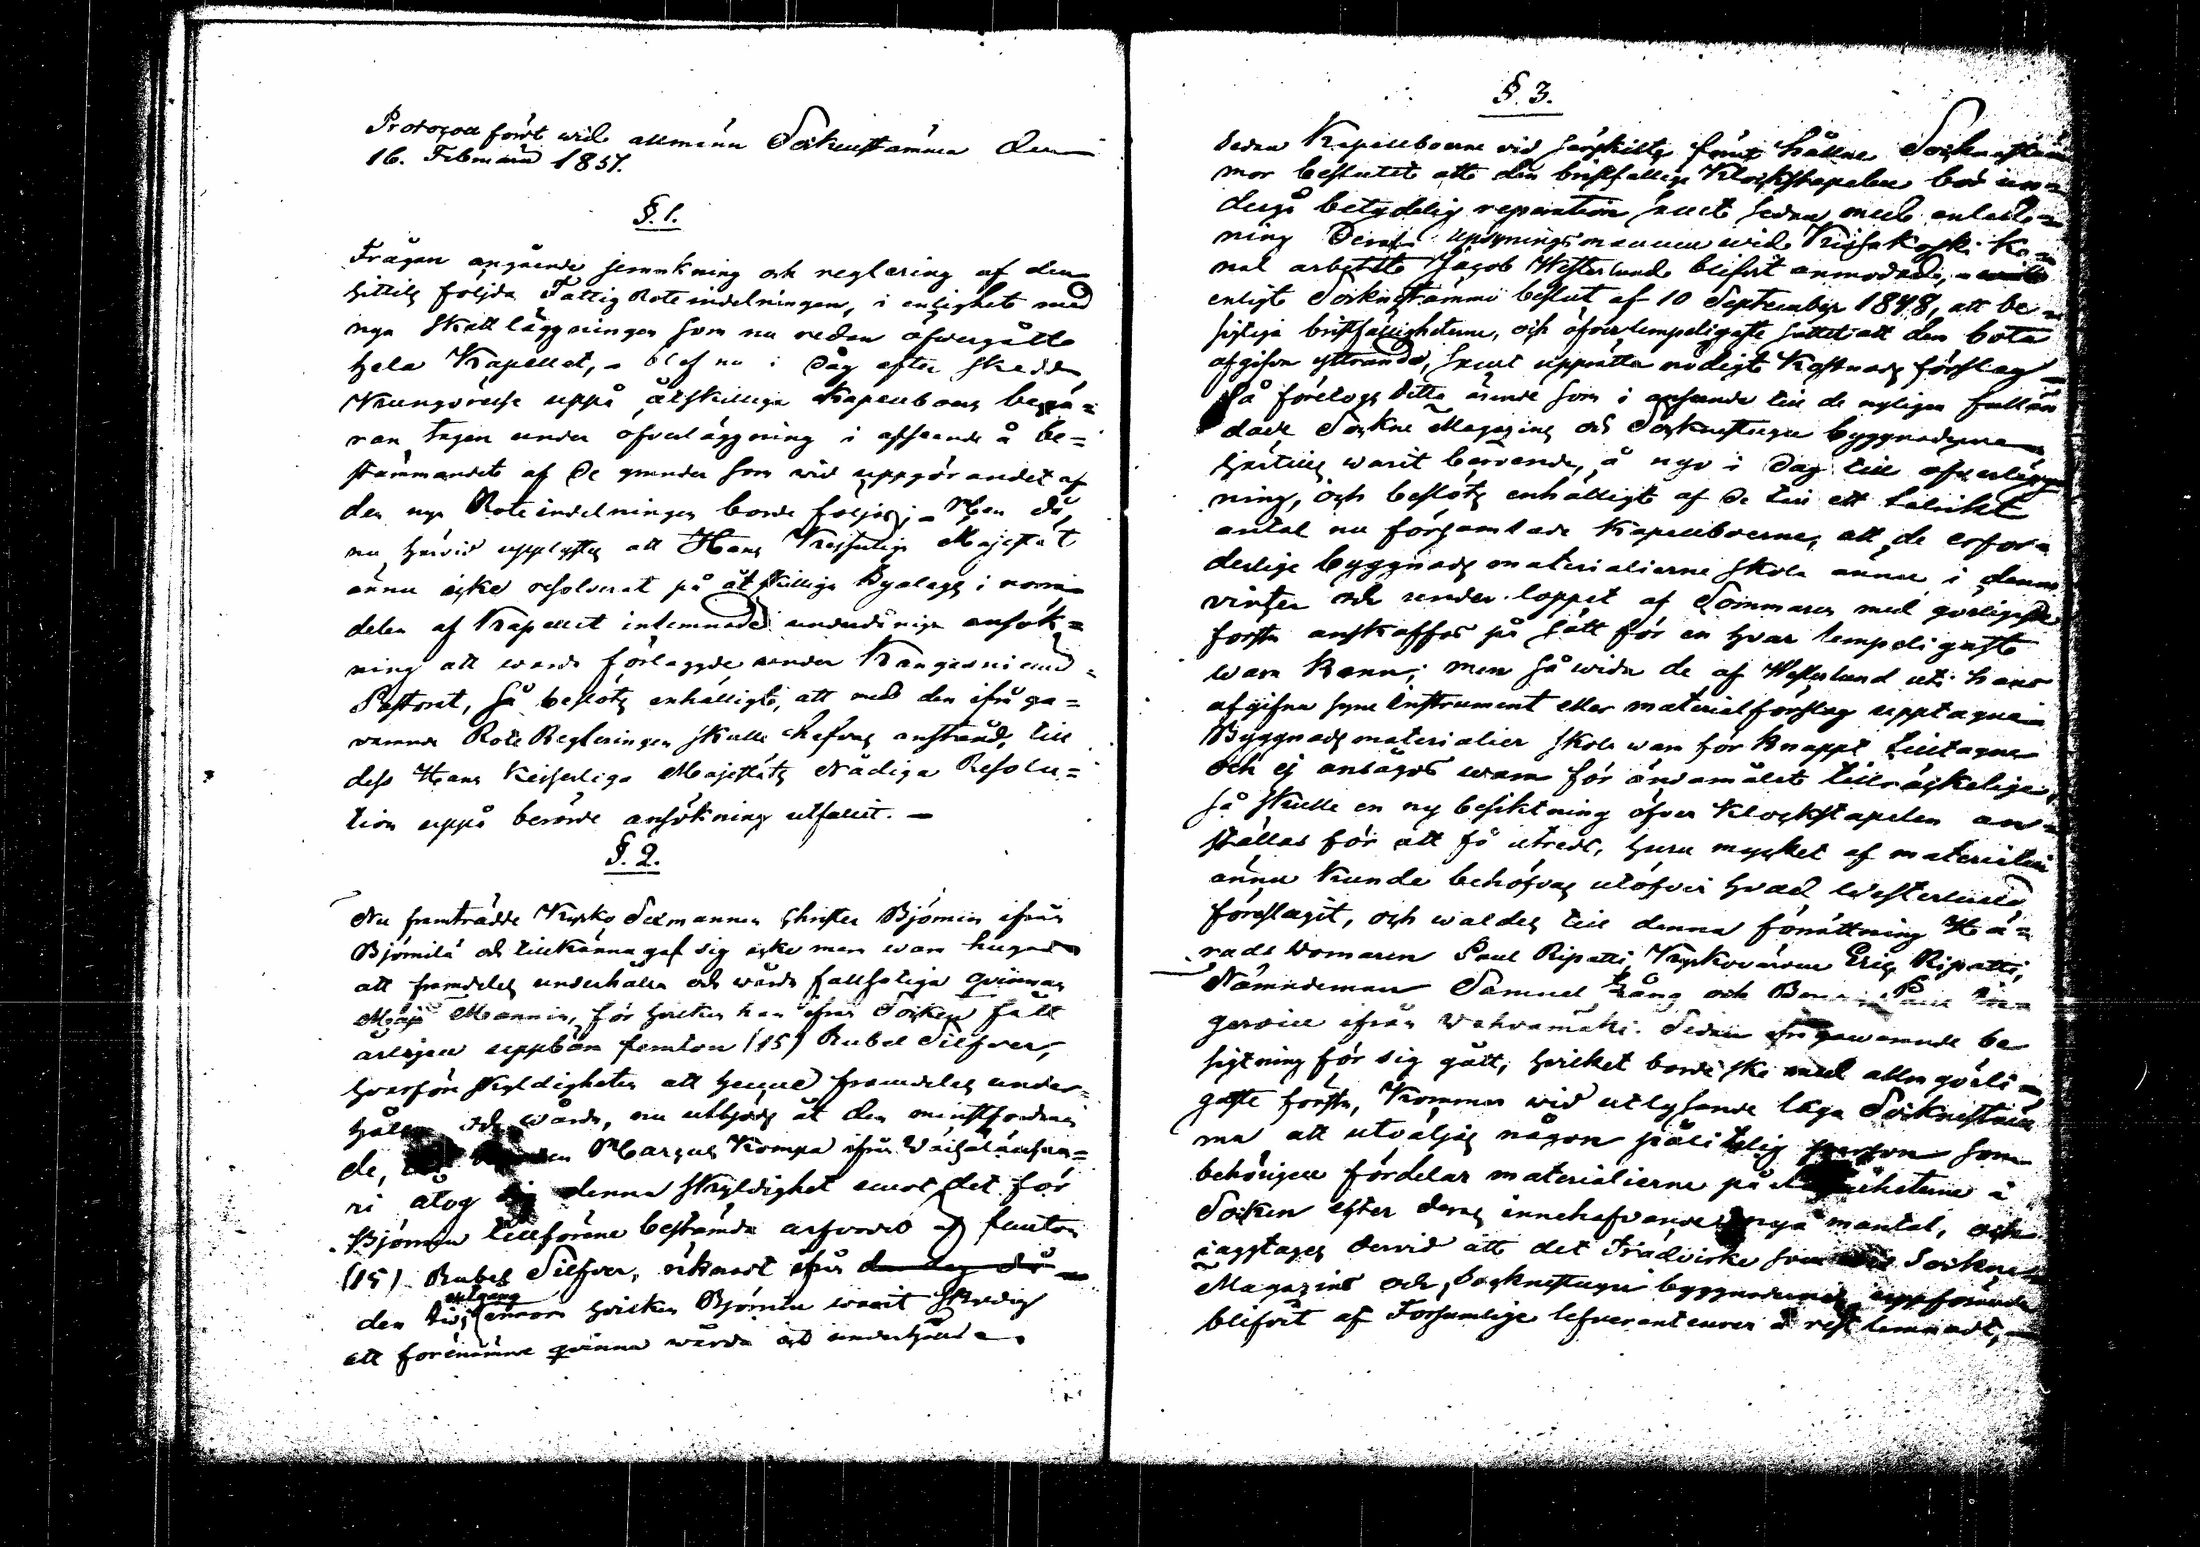 Protocoll fört wid allmän Sockenstämma den
16. Februarii 1851.
§. 1.
Frågan angående jemnkning och reglering af den
hittils följda Fattig Rote indelningen, i enlighet med
nya Skattläggningen som nu redan öfvergått
hela Kapellet, - blef nu i dag efter skedd
Kungörelse uppå åtskillige Kapellboers begä=
ran tagen under öfverläggning i afseende å be=
stämmandet af de grunder som vid uppgörandet af
den nya Rote indelningen borde följas; - Men då
nu härvid upplystes att Hans Kejserliga Majestät
ännu icke resolverat på åtskillige Byalags i norra
delen af Kapellet inlemnade underdåniga ansök=
ning att warda förlaggde under Kangasniemi
Pastorat, så beslöts enhälligt, att med den ifråga=
varande Rote Regleringen skulle hafvas anstånd, till
dess Hans Keiserliga Majestäts Nådiga Resolu=
tion uppå berörde ansökning utfallit. -
§. 2.
Nu framträdde Kyrko Sexmannen Christer Björnin ifrån
Björnilä och tillkänna gaf sig icke mera wara hugad
att framdeles underhålla och wårda fallsotiga qvinnan
Maja Mannin, för hvilken han ifrån Socken fått
årligen uppbära femton (15) Rubel Silfver,
hvarför skyldigheten att henne framdeles under=
hålla och wårda, nu utbjöds åt den minstfordran
de, Marcus Kompa ifrån
ri åtog sig denna skyldighet emot det för
Björnin tillförene bestämda arfvode af femton
(15) Rubel Silfver, räknadt ifrån den dag då
den tids utgång innom hvilken Björnin warit skyldig
att förenämnde qvinna wårda och underhålla.
§. 3.
Sedan Kapellboerne vid särskilta förut hållne Sockenstäm
mor beslutit att den bristfällige Klockstapelen bör un=
dergå betydelig reparation samt sedan med anled=
ning deraf upsyningsmannen wid Kissakoski Ka=
nal arbete Jacob Westerlund blifvit anmodad,
enligt Sockenstämmo beslut af 10 September 1848, att be=
sigtiga bristfälligheterne, och öfver lempeligaste sättet att den bota
afgifva yttrande, samt upprätta nödigt Kostnads förslag
Så företogs detta ärende som i anseende till de nyligen fullän
dade Sockne Magazins och Sockenstugu byggnaderne
härtills warit beroende, å nyo i dag till öfverlägg
ning, och beslöts enhälligt af de till ett talrikt
antal nu församlade Kapellboerne, att de erfor=
derlige byggnads materialierne skola ännu i denna
vinter och under loppet af Sommaren med görligaste
första anskaffas på sätt för en hvar lempeligast
wara kann; men så wida de af Westerlund uti hans
afgifna syne instrument eller materialförslag upptagne
Byggnads materialier skola wara för knappt tilltagne
och ej ansågos wara för ändamålet tillräckelige,
så skulle en ny besiktning öfver Klockstapelen an=
ställas för att få utredt, huru mycket af materialier
ännu kunde behöfvas utöfver hvad Westerlund
föreslagit, och waldes till denna förrättning Hä=
rads Domaren Paul Ripatti Kyrkovärden Eric Ripatti,
Nämndeman Samuel Häng och Bonden Paul
ifrån Wehvamäki. Sedan ifrågawarande be
sigtning för sig gått, hvilket borde ske med allra görli=
gaste första, kommer wid utlysande laga Sockenstäm
ma att utväljas någon pålitelig person som
behörigen fördelar materialierne på lägenheterne i
Socken efter deras innehafvande nya mantal, och
iagttages dervid att det Trädvirke som wid Sockne
Magazins och Sockenstugu byggnadernes uppförande
blifvit af Försumlige lefveranteurer å rest lemnadt,